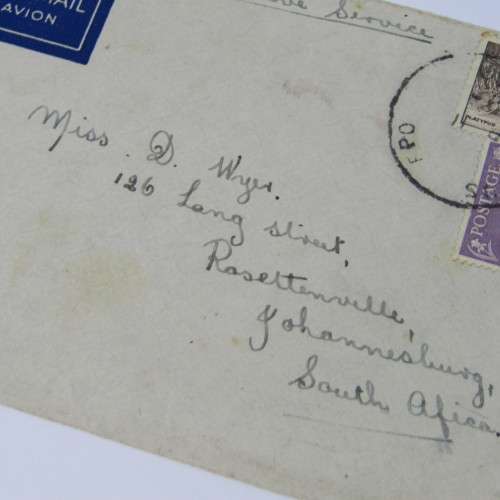 MAIL
AVION
Service
PLATYPUS
FPO
POSTAGE
Miss. D. Wyer.
126 Lang street,
Rosettenville,
Johannesburg,
South Africa.